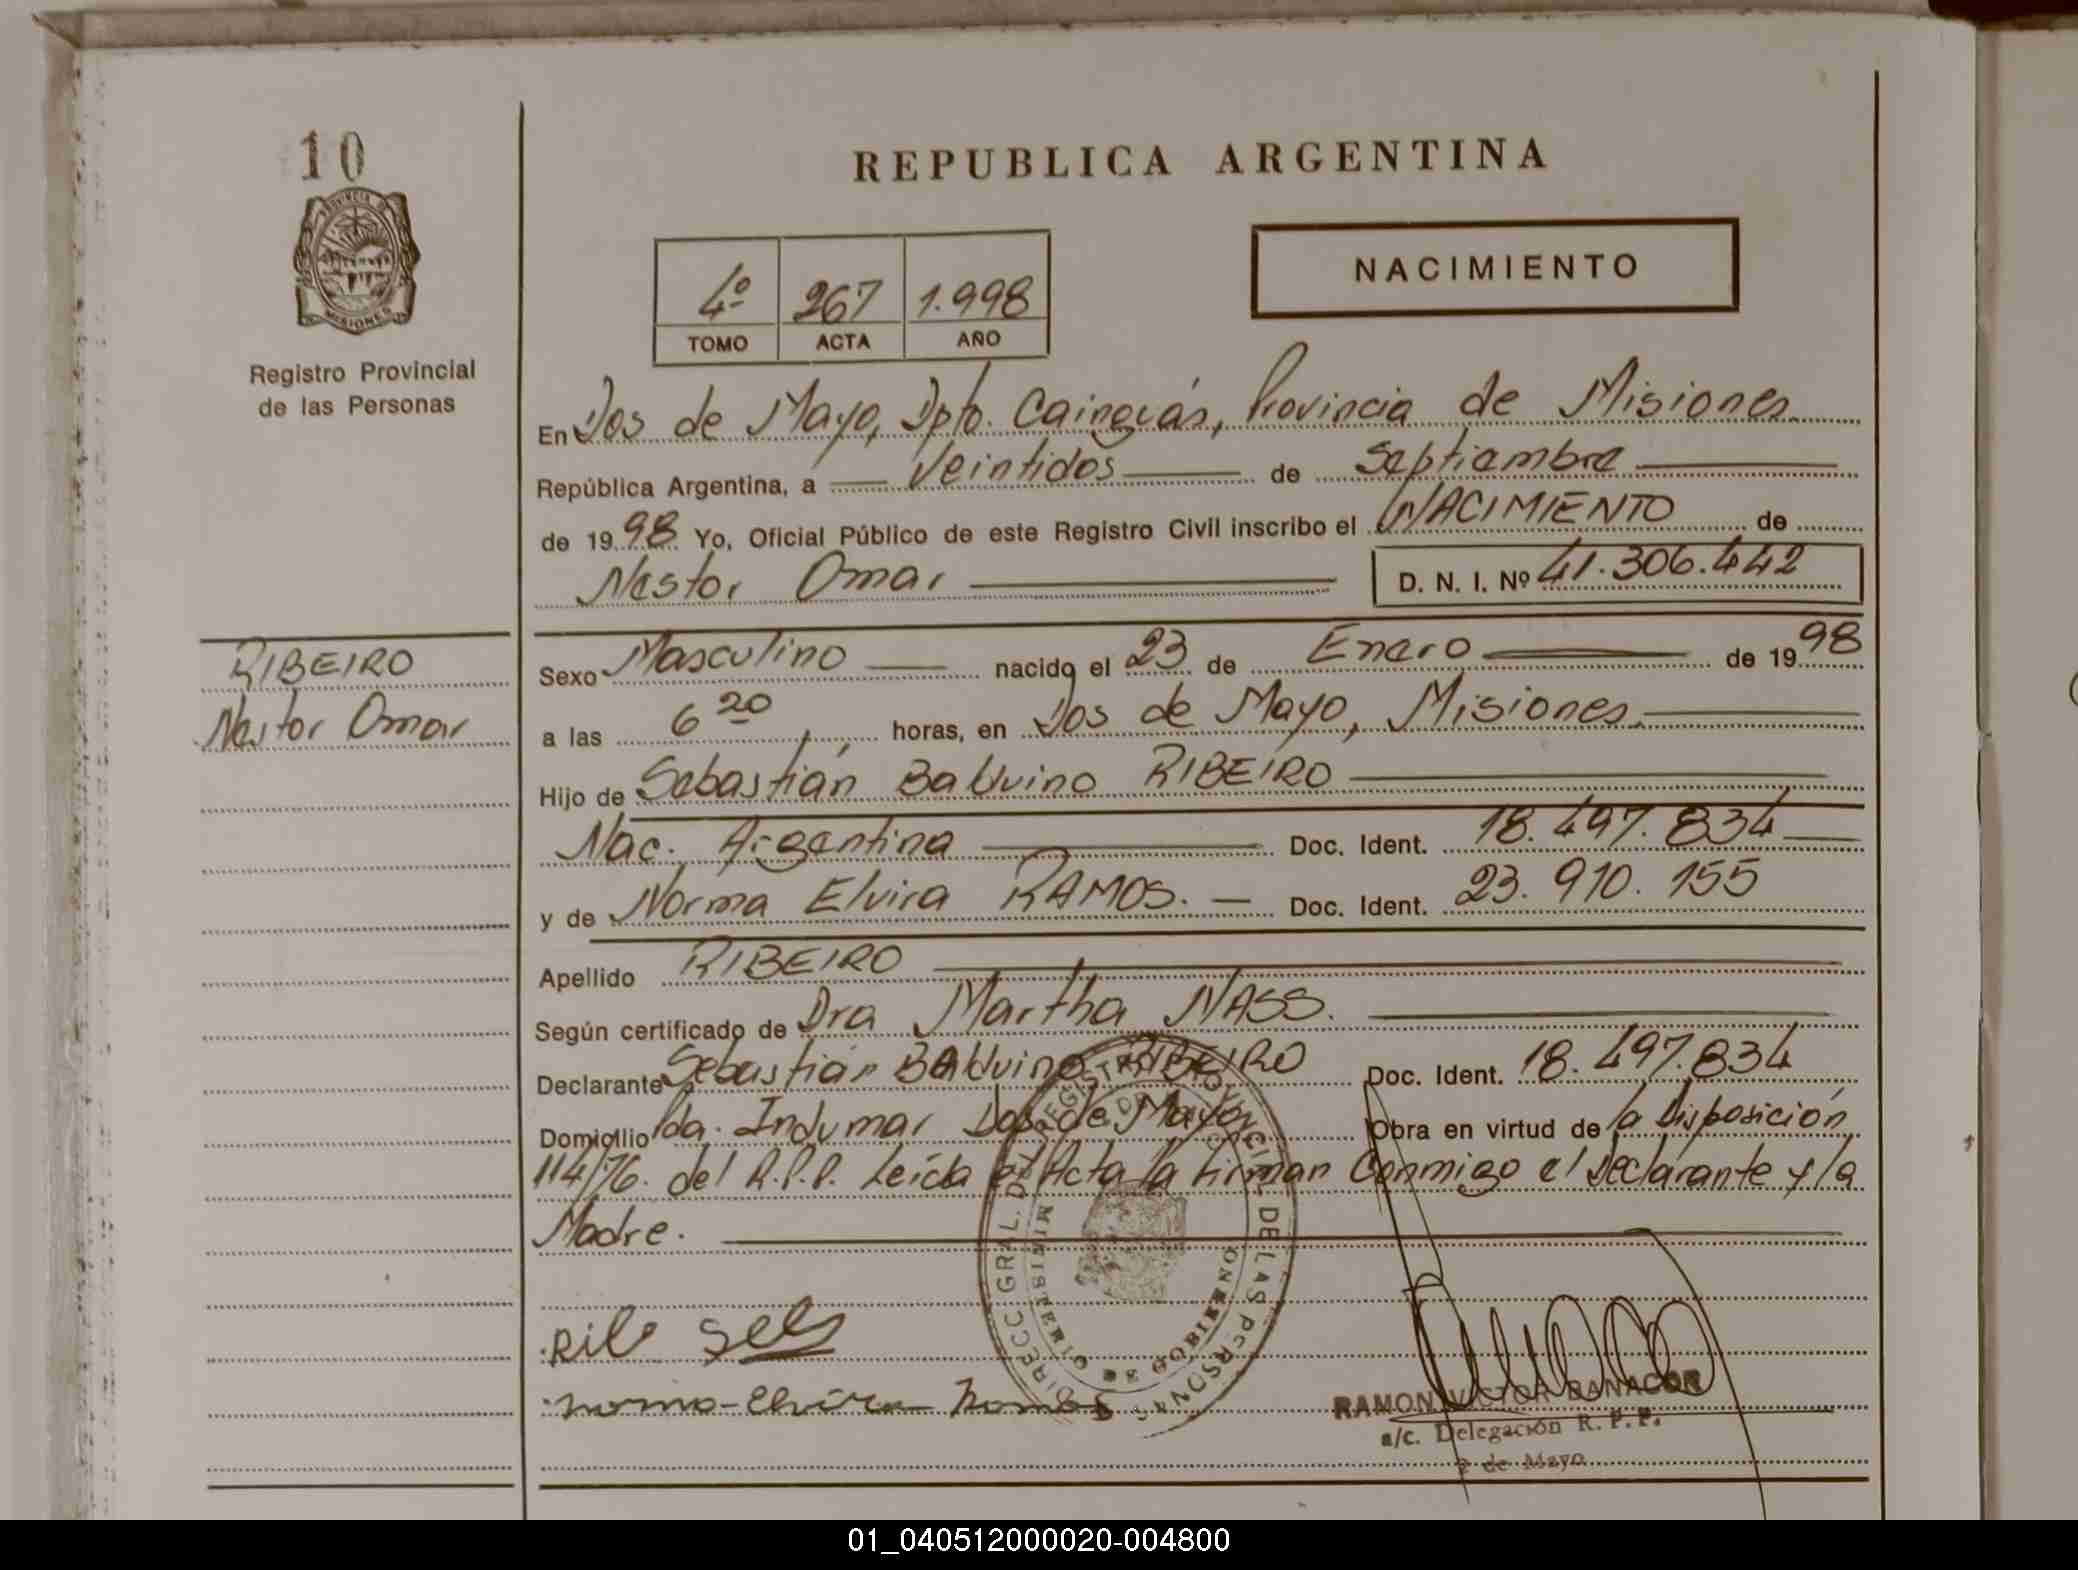 10
PROVINCIA DE
MISIONES
Registro Provincial
de las Personas
REPUBLICA ARGENTINA
4º 267 1.998
TOMO ACTA AÑO
NACIMIENTO
En Dos de Mayo, Dpto. Cainguás, Provincia de Misiones
República Argentina, a Veintidos de Septiembre
de 1998 Yo, Oficial Público de este Registro Civil inscribo el NACIMIENTO de
Nestor Omar D. N. I. Nº 41.306.442
RIBEIRO
Nestor Omar
Sexo Masculino nacido el 23 de Enero de 1998
a las 6 20 horas, en Dos de Mayo, Misiones.
Hijo de Sebastián Balduino RIBEIRO
Nac. Argentina Doc. Ident. 18.497.834
y de Norma Elvira RAMOS. Doc. Ident. 23.910.155
Apellido RIBEIRO
Según certificado de Dra Martha NASS.
Declarante Sebastián Balduino RIBEIRO Doc. Ident. 18.497.834
Domicilio Indumar Dos de Mayo Obra en virtud de la Disposición
114/76. del R.P.P. Leída el Acta la firman Conmigo el Declarante y la
Madre.
DIRECC. GRAL. DEL REGISTRO PROVINCIAL DE LAS PERSONAS
MINISTERIO DE GOBIERNO
norma Elvira Ramos
RAMON VICTOR BANACOR
a/c. Delegación R. P. P.
2 de Mayo
01_040512000020-004800